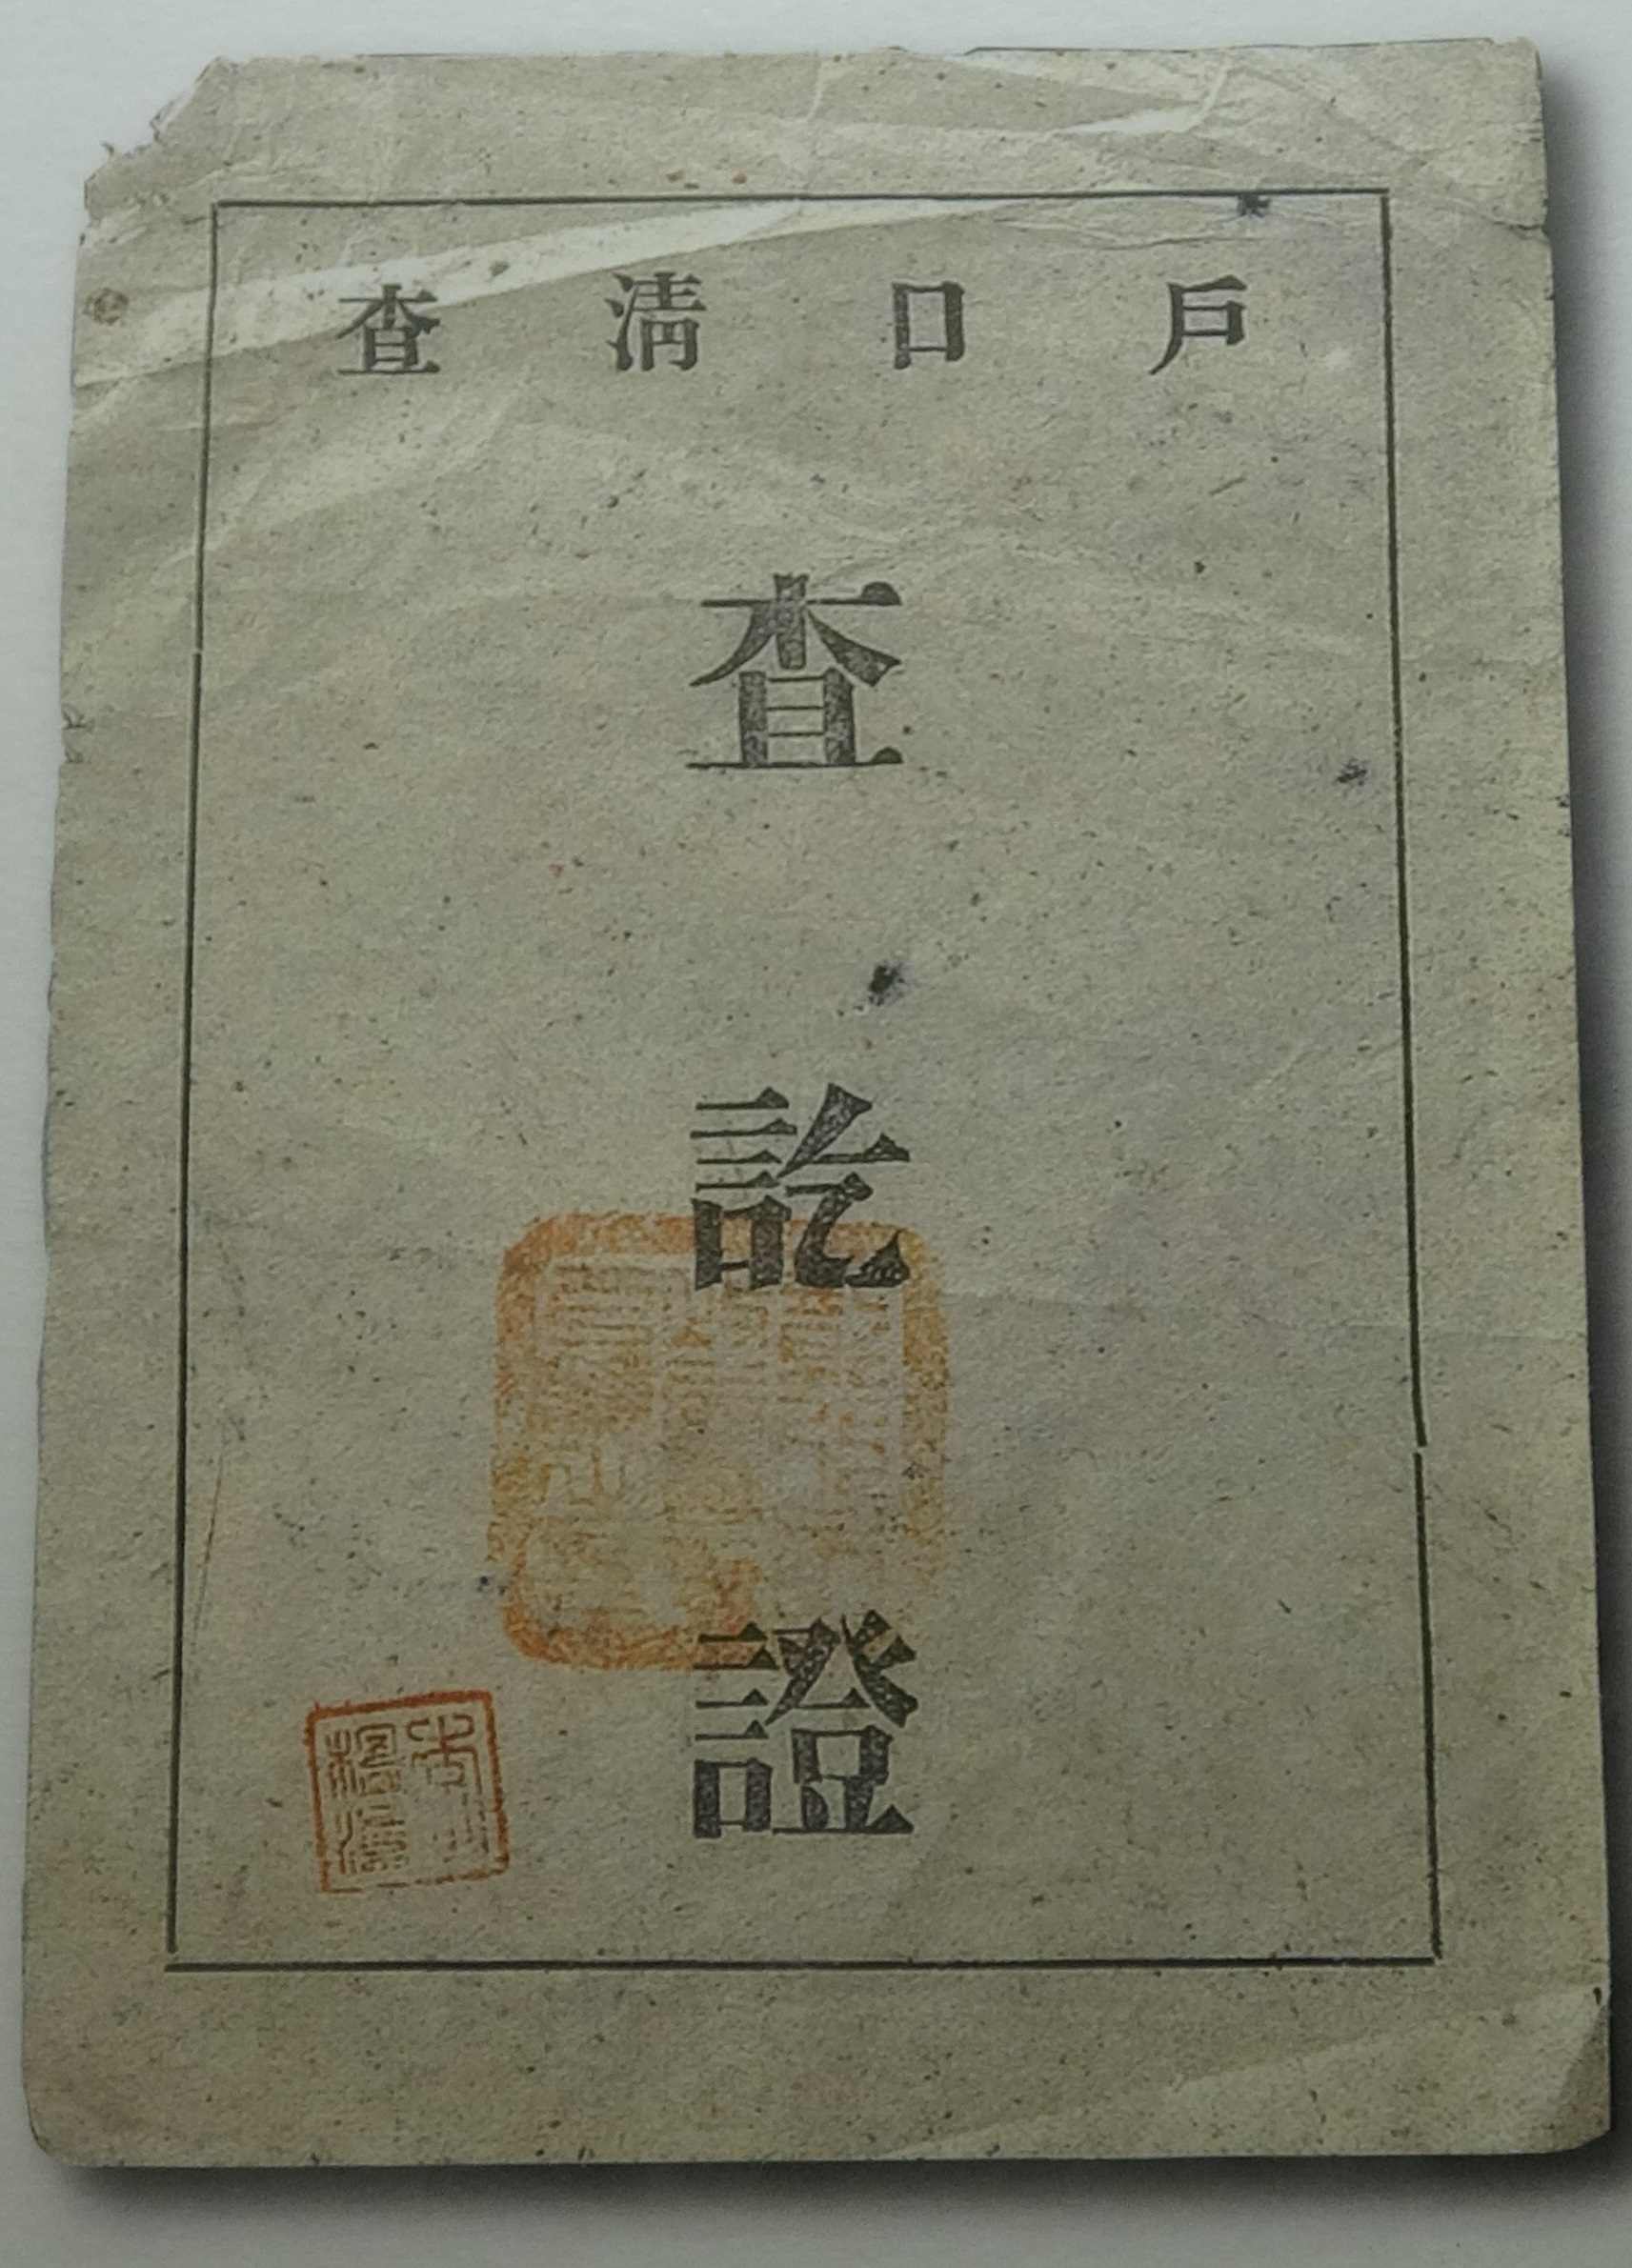 戶口清查
查訖證